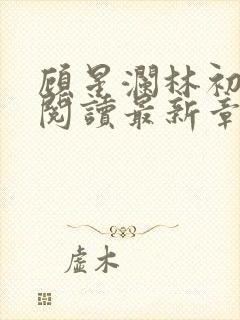 顧星瀾林初
閱讀最新章
虛木